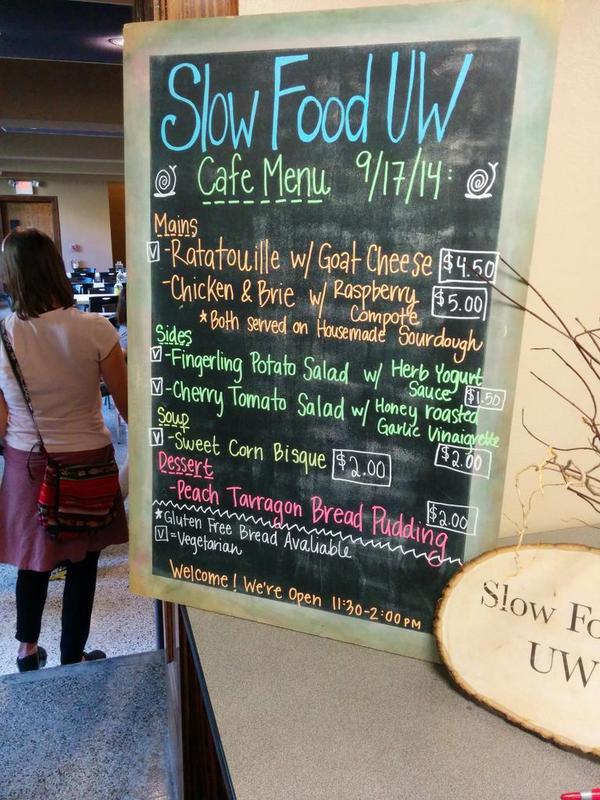 Slow Food UW
Cafe Menu 9/17/14:
Mains
V -Ratatouille w/ Goat Cheese $4.50
-Chicken & Brie w/ Raspberry Compote $5.00
*Both served on Housemade Sourdough
Sides
V -Fingerling Potato Salad w/ Herb Yogurt Sauce $1.50
V -Cherry Tomato Salad w/ Honey roasted Garlic Vinaigrette $2.00
Soup
V -Sweet Corn Bisque $2.00
Dessert
-Peach Tarragon Bread Pudding $2.00
*Gluten Free Bread Avaliable
V =Vegetarian
Welcome! We're Open 11:30-2:00 PM
Slow Fo
UW